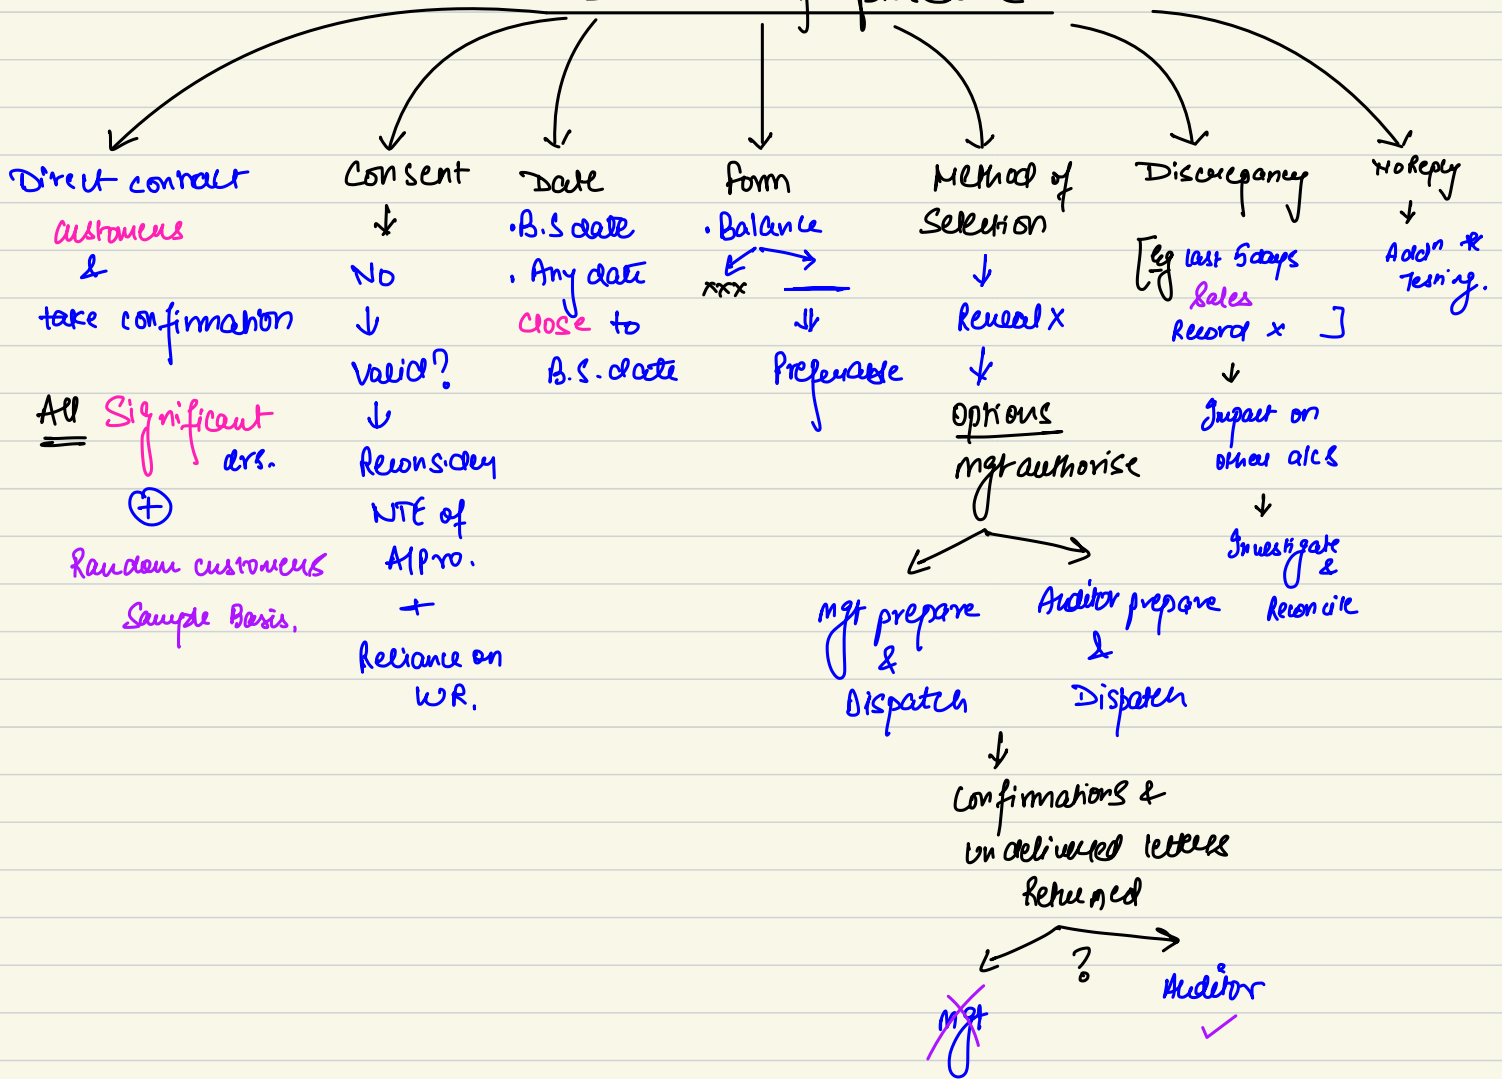 Direct contact
customers
&
take confirmation
All Significant
drs.
+
Random customers
Sample Basis.
Consent
No
Valid?
Reconsider
NTE of
A/Pro.
+
Reliance on
WR.
Date
. B.S date
. Any date
Close to
B.S. date
Form
. Balance
xxx
Preferable
Method of
Selection
Reveal x
Options
mgt authorise
mgt prepare
&
Dispatch
Auditor prepare
&
Dispatch
Confirmations &
undelivered letters
Returned
?
Mgt
Auditor
Discrepancy
[Eg last 5 days
Sales
Record x ]
Impact on
other a/cs
Investigate
&
Reconcile
No Reply
Addn
Testing.